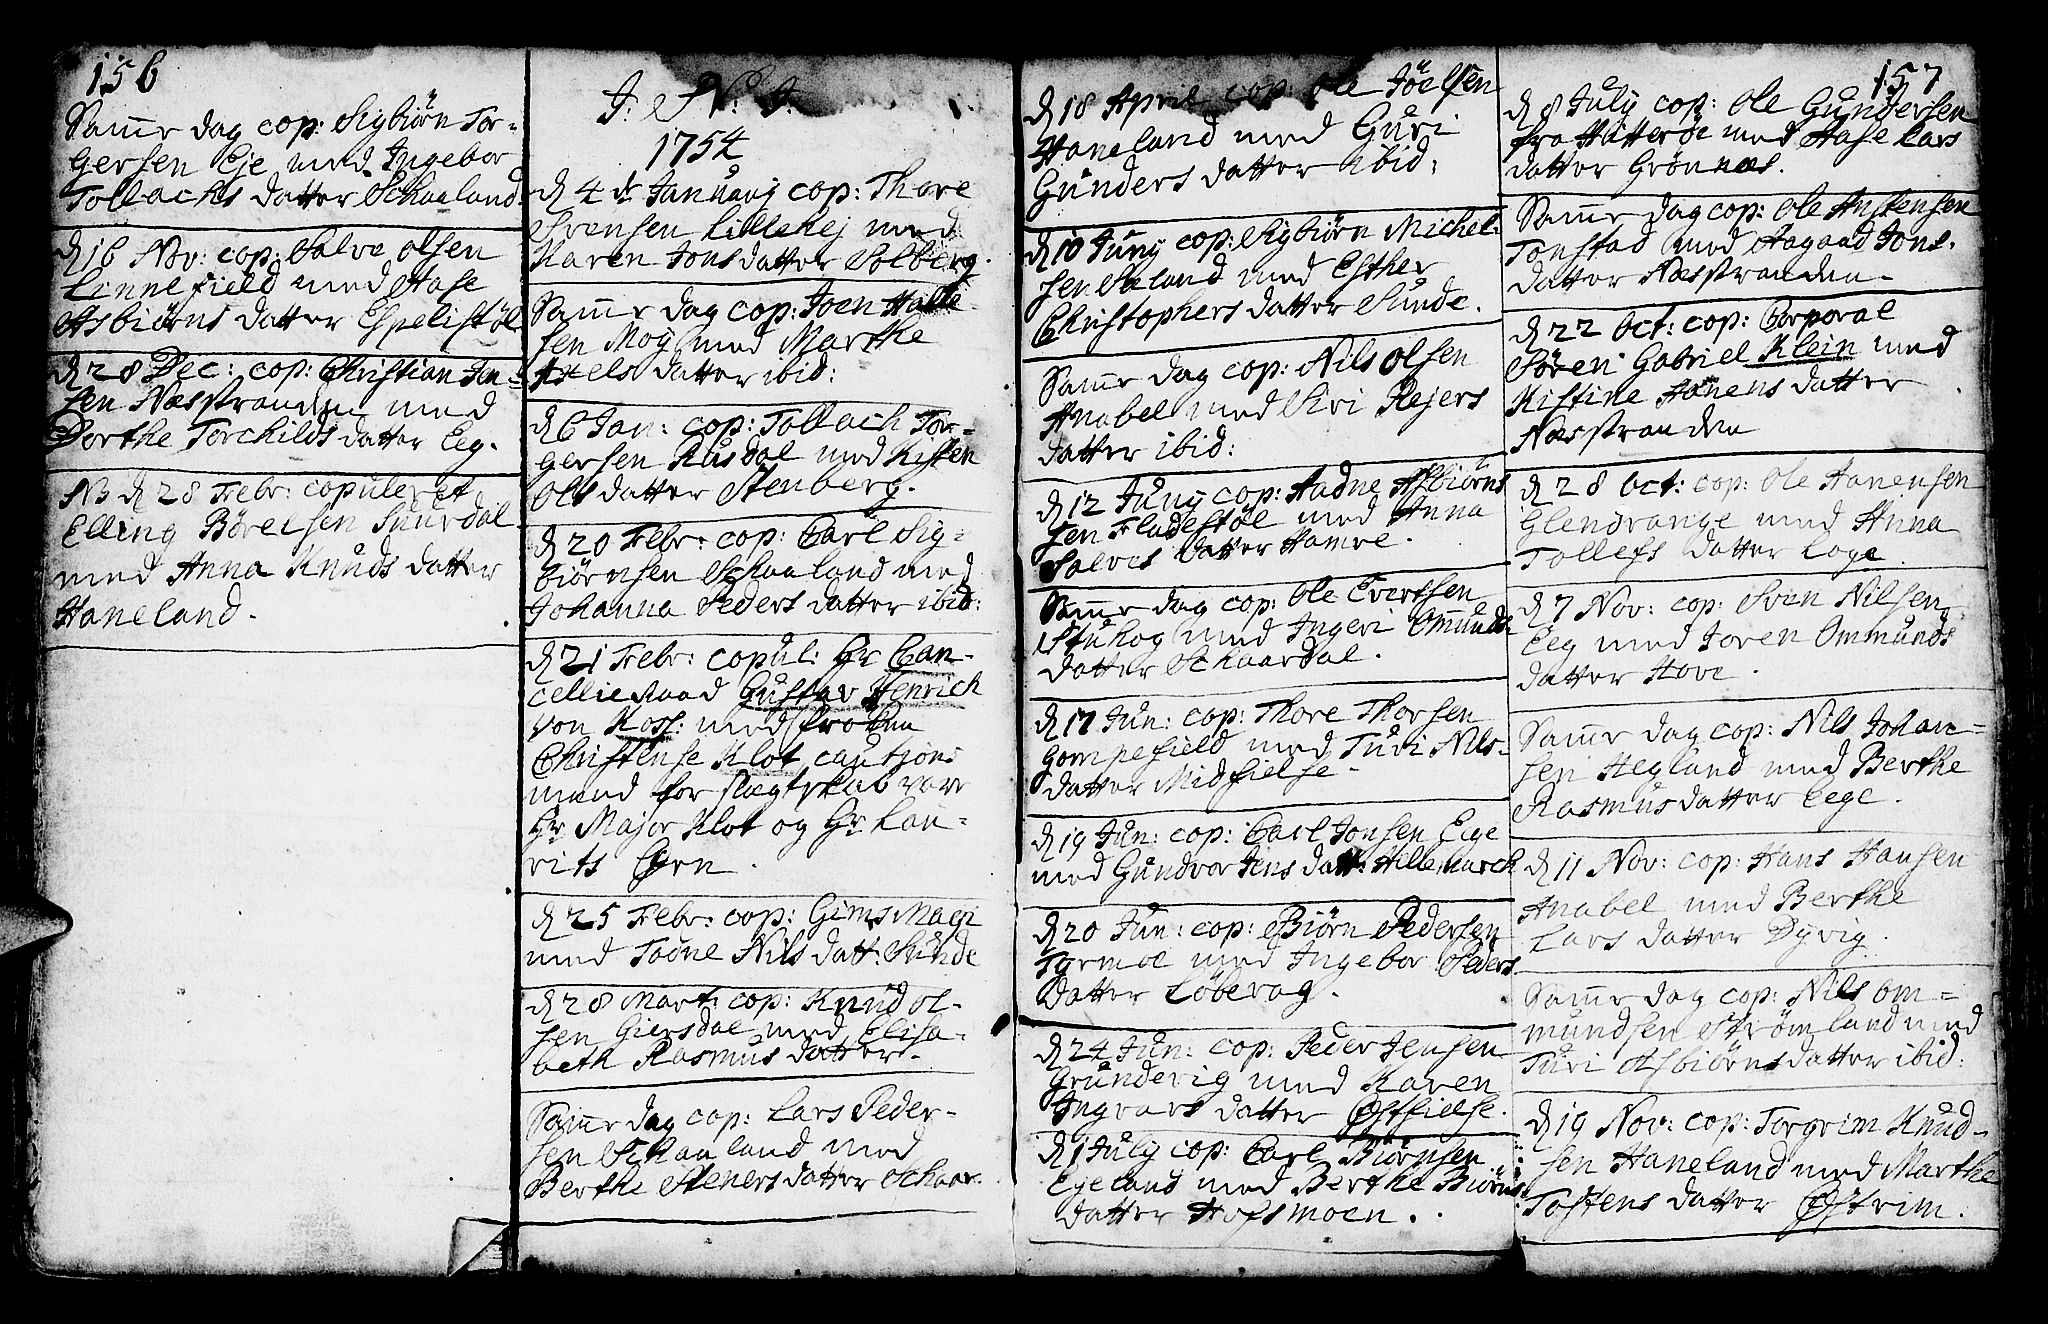 156
Samme dag cop: Sigbiörn Tor-
gersen Eje med Ingebor
Tollachs datter Schaaland.
d 16 Nov: cop: Salve olsen
Linnefield med Aase
Asbiörns datter Espelistöl
d 28 Dec: cop: Christian Jen-
sen Næsstranden med
Dorthe Torchilds datter Eeg.
NB d 28 Febr: copuleret
Elling Börelsen Suurdal
med Anna Knuds datter
Haneland.
J: N: J:
1754
d 4de January cop: Thore
Svensen Lillehej med
Karen Jons datter Solberg.
Samme dag cop: Joen Halle-
sen Moy med Marthe
Axels datter ibid:
d 6 Jan: cop: Tollach Tor-
gersen Rusdal med Kisten
Ols datter Stenberg.
d 20 Febr: cop: Carl Sig-
biörnsen Schaaland med
Johanna Peders datter ibid:
d 21 Febr: copul: Hr Can-
cellieRaad Gustav Henrich
von Koss: med fröken
Christense Klot cautions
mænd for slægtskab vare
Hr Major Klot og Hr Lau-
rits Eyrn.
d 25 Febr: cop: Gims Magi
med Taane Nils datt: Sunde
d 28 Mart: cop: Knud ol-
sen Giersdal med Elisa-
beth Rasmus datter.
Samme dag cop: Lars Peder-
sen Schaaland med
Berthe Steners datter Schaar:
d 18 April cop: Ole Jöelsen
Haneland med Guri
Gunders datter ibid:
d 10 Juny cop: Sigbiörn Michel-
sen Sæland med Esther
Christophers datter Sunde.
Samme dag cop: Nils olsen
Anabel med Siri Rejers
datter ibid:
d 12 Juny cop: Aadne Asbiörns
sen Fladestöl med Anna
Salves datter Hamre.
Samme dag cop: Ole Evertsen
Stuhog med Ingeri Ommunds
datter Schaardal.
d 17 Jun: cop: Thore Thorsen
Gompefield med Turi Nils-
datter Midfielse.
d 19 Jun: cop: Carl Jonsen Eige
med Gundvor Jens datt: Hillemarck
d 20 Jun: cop: Biörn Pedersen
Tormoe med Ingebor Peders
datter Löberag.
d 24 Jun: cop: Peder Jensen
Grunderig med Karen
Ingvars datter Østfielse.
d 1 July cop: Carl Biörnsen
Egeland med Berthe Biörns
datter Hofsmoen.
157
d 8 July cop: Ole Gundersen
fra Hitteröe med Aase Lars
datter Grönnæs.
Samme dag cop: Ole Anstensen
Tonstad med Aagaad Jons-
datter Næsstranden.
d 22 Oct: cop: Corporal
Sören Gabriel Klein med
Kistine Hanens datter
Næsstranden
d 28 Oct: cop: Ole Hanensen
Glendrange med Anna
Tollefs datter Loge
d 7 Nov: cop: Sven Nilsen
Eeg med Joren Ommunds
datter Hove.
Samme dag cop: Nils Johan-
sen Hegland med Berthe
Rasmus datter Eege.
d 11 Nov: cop: Hans Hansen
Anabel med Berthe
Lars datter Dyrig.
Samme dag cop: Nils om-
mundsen Strömland med
Turi Asbiörns datter ibid:
d 19 Nov: cop: Torgrim Knud-
sen Haneland med Marthe
Tostens datter Østrim.